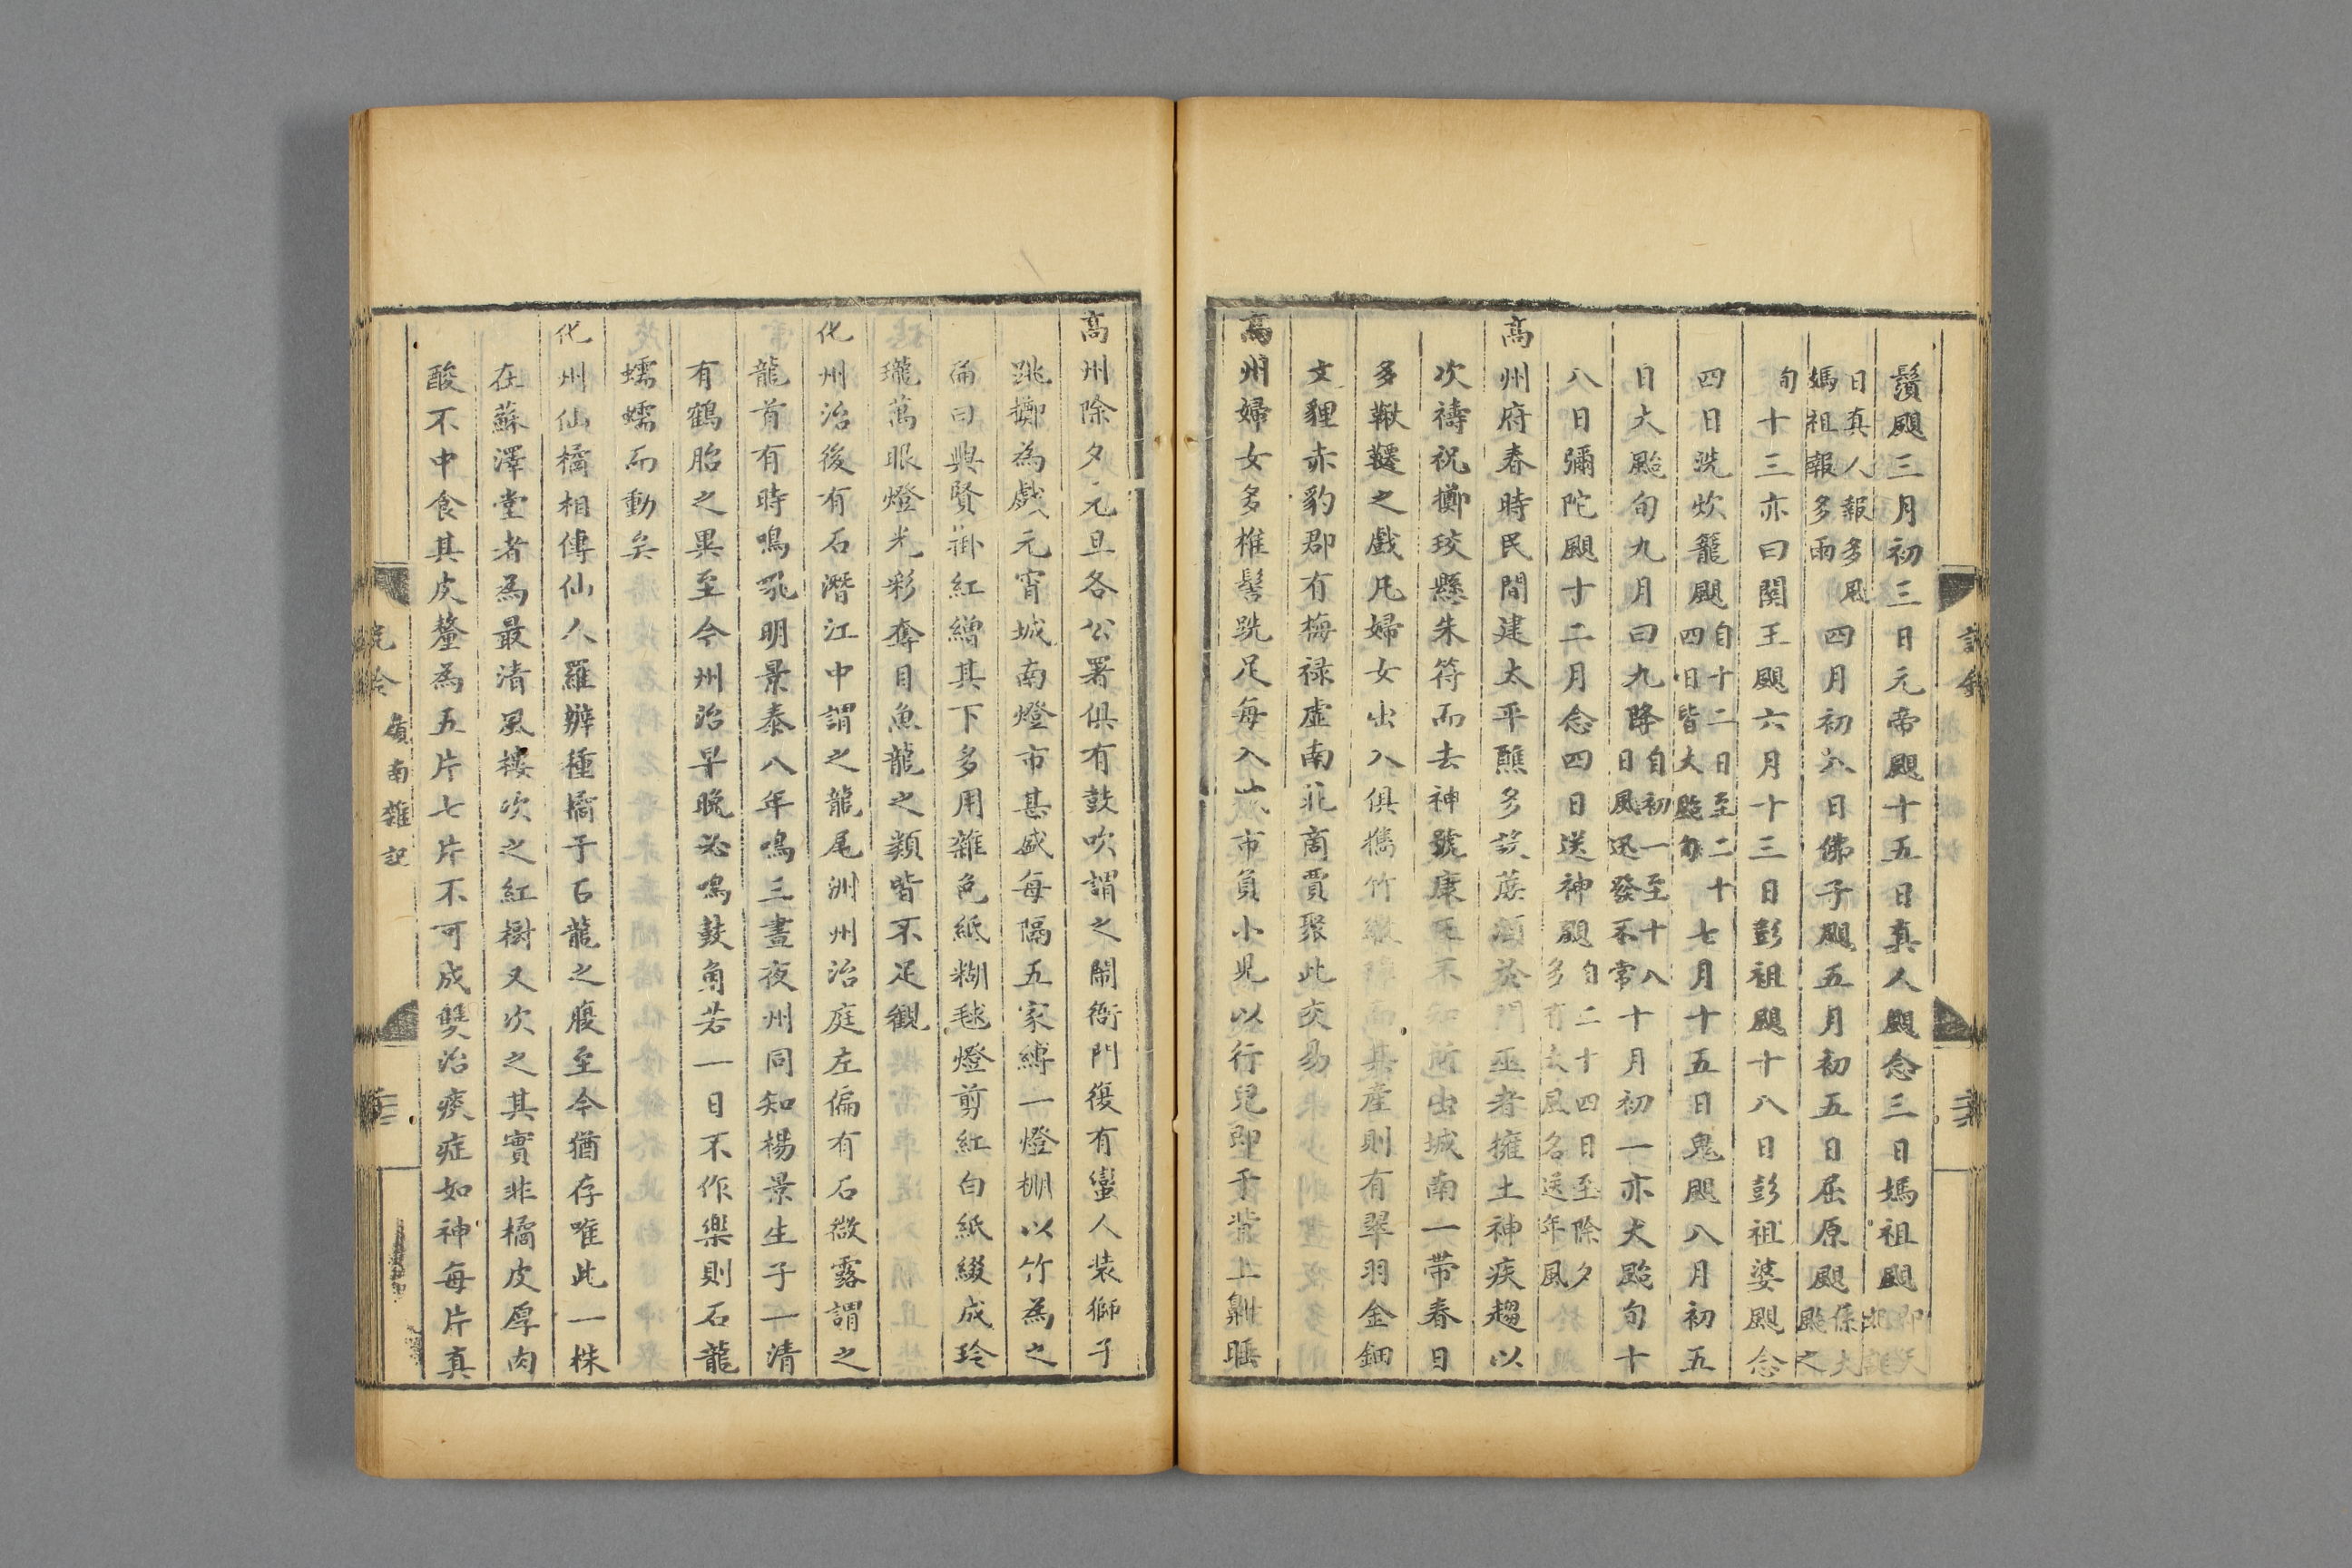 鬚颶三月初三日元帝颶十五日真人颶念三日媽祖颶即天妃誕
日真人報多風
媽祖報多雨四月初八日佛子颶五月初五日屈原颶係大颶之
旬十三亦曰關王颶六月十三日彭祖颶十八日彭祖婆颶念
四日洗炊籠颶自十二日至二十四日皆大颶旬七月十五日鬼颶八月初五
日大颱旬九月曰九降自初一至十八日風迅發不常十月初一亦大颱旬十
八日彌陀颶十二月念四日送神颶自二十四日至除夕多有大風名送年風
高州府春時民間建太平醮多設蔗酒於門巫者擁土神疾趨以
次禱祝擲珓懸朱符而去神號康王不知所出城南一帶春日
多鞦韆之戲凡婦女出入俱攜竹繖障面其產則有翠羽金鈿
文貍赤豹郡有梅祿虛南北商賈聚此交易
高州婦女多椎髻跣足每入城市負小兒以行兒即于背上鼾睡
高州除夕元旦各公署俱有鼓吹謂之鬧衙門復有蠻人裝獅子
跳擲為戲元宵城南燈市甚盛每隔五家縛一燈棚以竹為之
匾曰興賢掛紅繒其下多用雜色紙糊毬燈剪紅白紙綴成玲
瓏萬眼燈光彩奪目魚龍之類皆不足觀
化州治後有石潛江中謂之龍尾洲州治庭左偏有石微露謂之
龍首有時鳴吼明景泰八年鳴三晝夜州同知楊景生子一清
有鶴胎之異至今州治早晚必鳴鼓角若一日不作樂則石龍
蠕蠕而動矣
化州仙橘相傳仙人羅辨種橘子石龍之腹至今猶存唯此一株
在蘇澤堂者為最清風樓次之紅樹又次之其實非橘皮厚肉
酸不中食其皮釐為五片七片不可成雙治痰症如神每片真
嶺南雜記